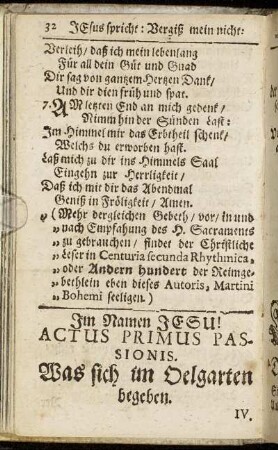 32 JEsus spricht: Vergiß mein nicht:
Verleih/ daß ich mein lebenlang
Für all dein Güt und Gnad
Dir sag von gantzem Hertzen Dank/
Und dir dien früh und spat.
7. AM letzten End an mich gedenk/
Nimm hin der Sünden Last:
Im Himmel mir das Erbtheil schenk/
Welchs du erworben hast.
Laß mich zu dir ins Himmels Saal
Eingehn zur Herrligkeit/
Daß ich mit dir das Abendmal
Geniß in Fröligkeit/ Amen.
„ (Mehr dergleichen Gebeth/ vor/ in und
„ nach Empfahung des H. Sacraments
„ zu gebrauchen/ findet der Christliche
„ Leser in Centuria secunda Rhythmica,
„ oder Andern hundert der Reimge-
„ bethlein eben dieses Autoris, Martini
„ Bohemi seeligen.)
Im Namen JESU!
ACTUS PRIMUS PAS-
SIONIS.
Was sich im Oelgarten
begeben.
IV.